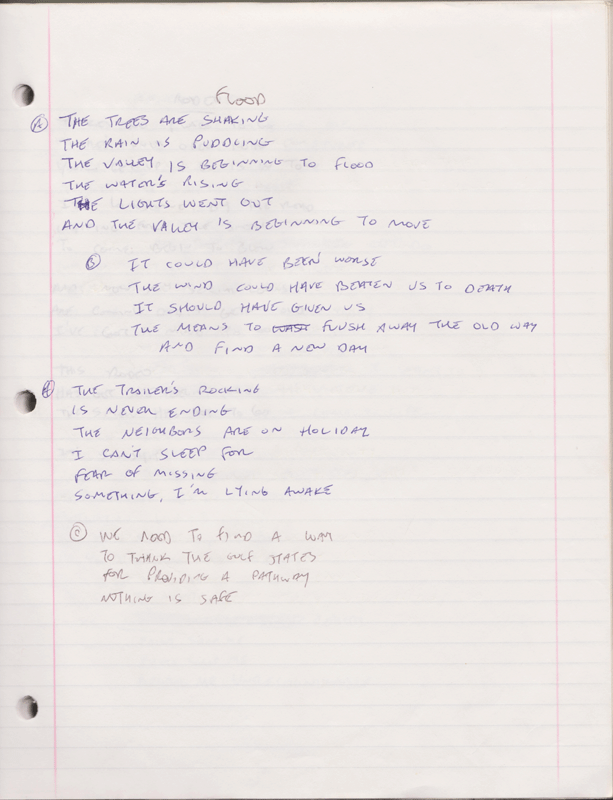 FLOOD
Ⓐ THE TREES ARE SHAKING
THE RAIN IS PUDDLING
THE VALLEY IS BEGINNING TO FLOOD
THE WATER'S RISING
THE LIGHTS WENT OUT
AND THE VALLEY IS BEGINNING TO MOVE
Ⓑ IT COULD HAVE BEEN WORSE
THE WIND COULD HAVE BEATEN US TO DEATH
IT SHOULD HAVE GIVEN US
THE MEANS TO FLUSH AWAY THE OLD WAY
AND FIND A NEW DAY
THE TRAILER'S ROCKING
IS NEVER ENDING
THE NEIGHBORS ARE ON HOLIDAY
I CAN'T SLEEP FOR
FEAR OF MISSING
SOMETHING, I'M LYING AWAKE
Ⓒ WE NEED TO FIND A WAY
TO THANK THE GULF STATES
FOR PROVIDING A PATHWAY
NOTHING IS SAFE